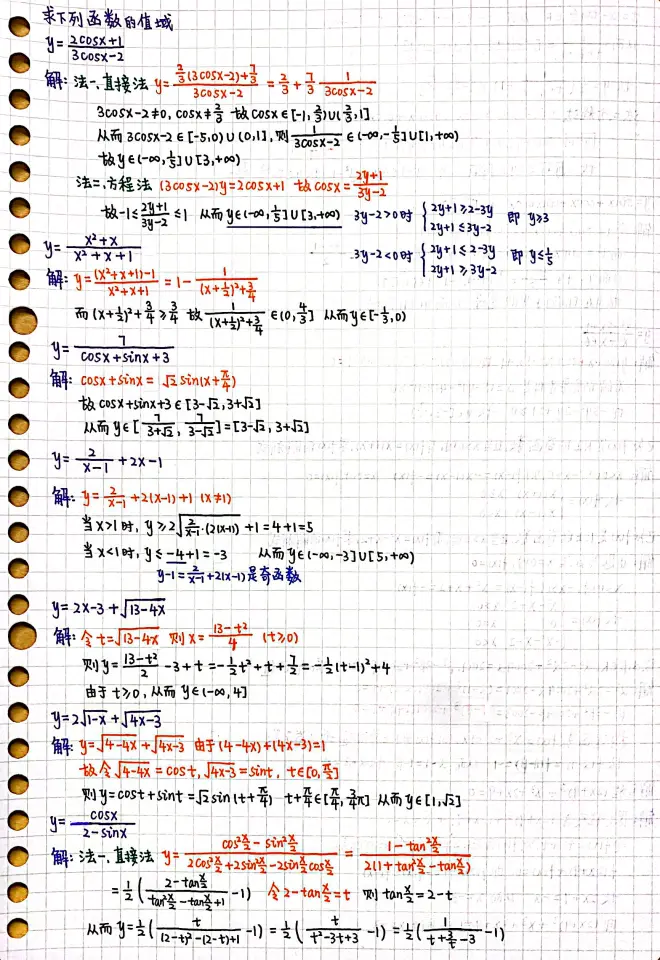 求下列函数的值域
y=(2cosx+1)/(3cosx-2)
解: 法一、直接法 y=(2/3(3cosx-2)+7/3)/(3cosx-2) = 2/3 + 7/3 · 1/(3cosx-2)
3cosx-2≠0, cosx≠2/3 故cosx∈[-1, 2/3)∪(2/3,1]
从而3cosx-2∈[-5,0)∪(0,1], 则 1/(3cosx-2) ∈(-∞,-1/5]∪[1,+∞)
故y∈(-∞,1/5]∪[3,+∞)
法二、方程法 (3cosx-2)y=2cosx+1 故cosx=(2y+1)/(3y-2)
故-1≤(2y+1)/(3y-2)≤1 从而y∈(-∞,1/5]∪[3,+∞) 3y-2>0时 {2y+1≥2-3y 2y+1≤3y-2 即 y≥3
3y-2<0时 {2y+1≤2-3y 2y+1≥3y-2 即 y≤1/5
y=(x²+x)/(x²+x+1)
解: y=((x²+x+1)-1)/(x²+x+1) = 1- 1/((x+1/2)²+3/4)
而(x+1/2)²+3/4≥3/4 故 1/((x+1/2)²+3/4) ∈(0,4/3] 从而y∈[-1/3,0)
y=7/(cosx+sinx+3)
解: cosx+sinx= √2sin(x+π/4)
故cosx+sinx+3∈[3-√2,3+√2]
从而y∈[7/(3+√2), 7/(3-√2)]=[3-√2,3+√2]
y=2/(x-1)+2x-1
解: y=2/(x-1)+2(x-1)+1 (x≠1)
当x>1时, y≥2√(2/(x-1)·(2(x-1)))+1=4+1=5
当x<1时, y≤-4+1=-3 从而y∈(-∞,-3]∪[5,+∞)
y-1=2/(x-1)+2(x-1)是奇函数
y=2x-3+√(13-4x)
解: 令t=√(13-4x) 则x=(13-t²)/4 (t≥0)
则y=(13-t²)/2-3+t=-1/2t²+t+7/2=-1/2(t-1)²+4
由于t≥0,从而y∈(-∞,4]
y=2√(1-x)+√(4x-3)
解: y=√(4-4x)+√(4x-3) 由于(4-4x)+(4x-3)=1
故令√(4-4x)=cost,√(4x-3)=sint, t∈[0,π/2]
则y=cost+sint=√2sin(t+π/4) t+π/4∈[π/4,3/4π] 从而y∈[1,√2]
y=cosx/(2-sinx)
解: 法一、直接法 y=(cos²x/2-sin²x/2)/(2cos²x/2+2sin²x/2-2sinx/2cosx/2) = (1-tan²x/2)/(2(1+tan²x/2-tanx/2))
=1/2((2-tanx/2)/(tan²x/2-tanx/2+1)-1) 令2-tanx/2=t 则tanx/2=2-t
从而y=1/2(t/((2-t)²-(2-t)+1)-1)=1/2(t/(t²-3t+3)-1)=1/2(1/(t+3/t-3)-1)